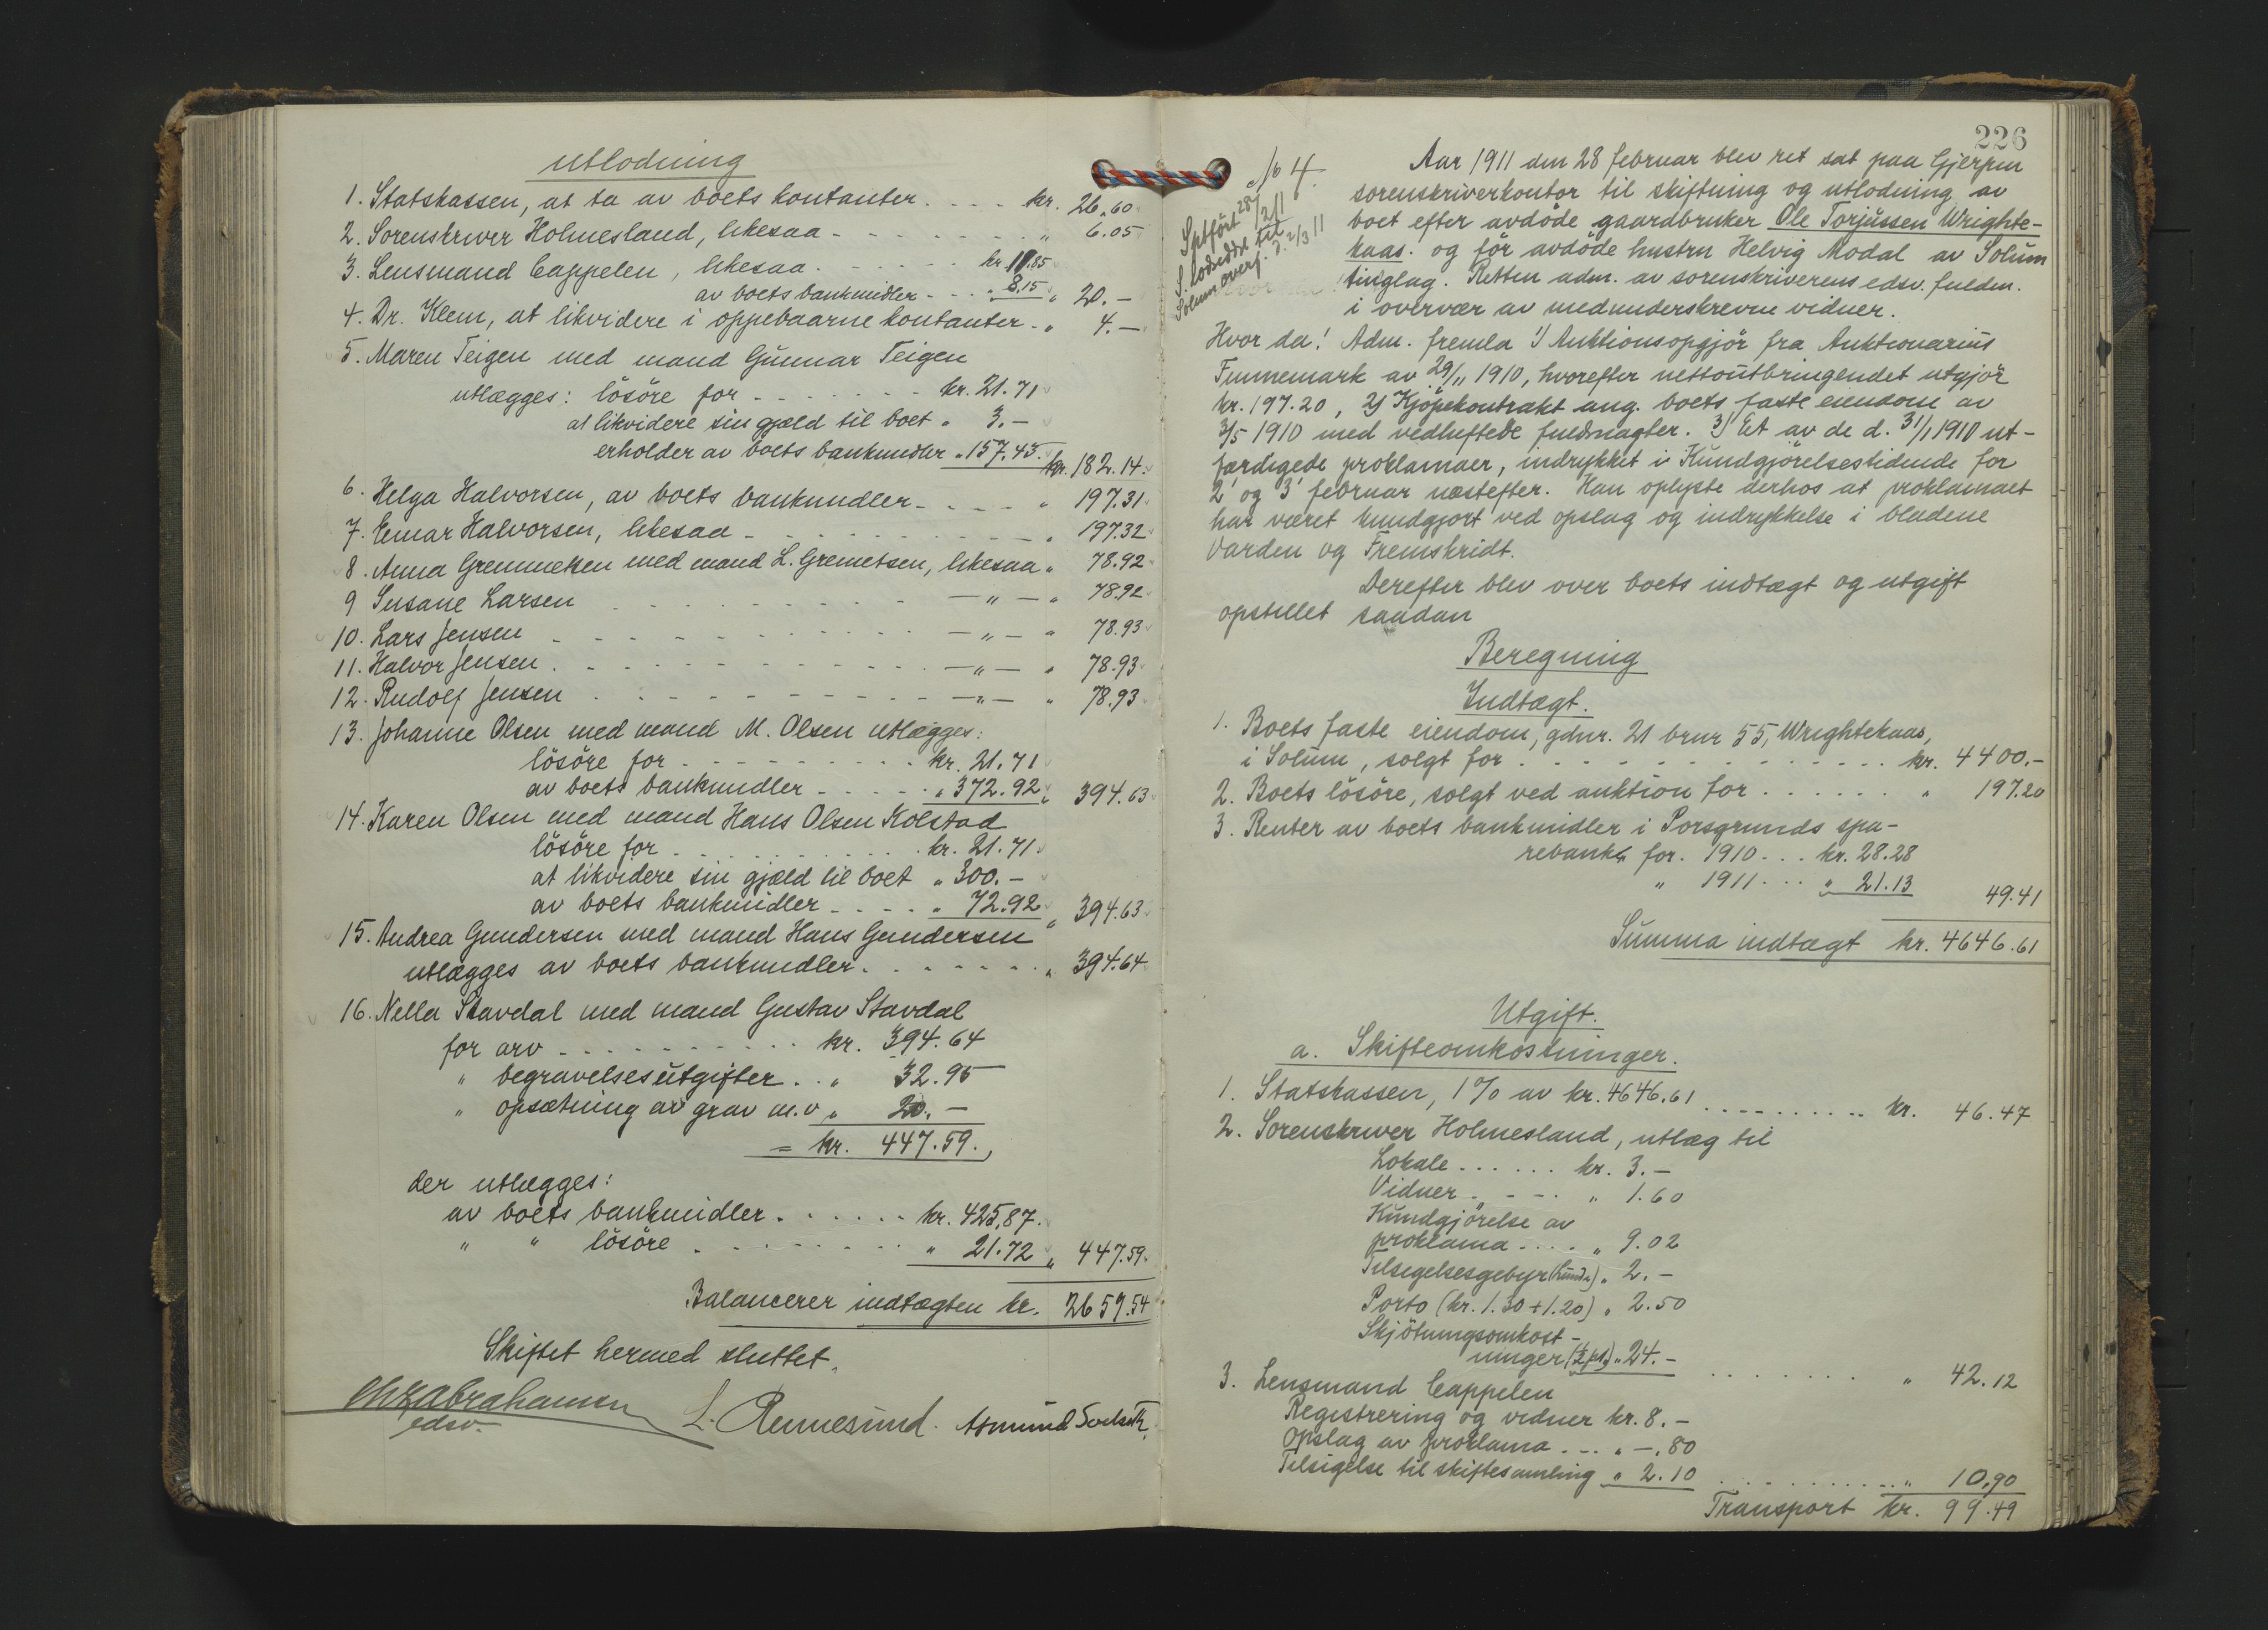 utlodning
1. Statskassen, at ta av boets kontanter . . . . kr. 26.60
2. Sorenskriver Holmesland, likesaa - - - - - - - " 6.05
3. Lensmand Cappelen, likesaa. - - - - - kr. 11.85
av boets bankmidler - - - " 8.15 " 20.-
4. Dr. Klem, at likvidere i oppebaarne kontanter - " 4.-
5. Maren Teigen med mand Gunnar Teigen
utlægges: lösöre for - - - - - - - kr. 21.71
at likvidere sin gjæld til boet " 3.-
erholder av boets bankmidler " 157.43. kr. 182.14.
6. Helga Halvorsen, av boets bankmidler - - - - " 197.31
7. Einar Halvorsen, likesaa - - - - - - - - - - " 197.32
8. Anna Gremmetsen med mand L. Gremetsen, likesaa " 78.92
9 Susane Larsen - - - - - - - - - - — " — " 78.92
10. Lars Jensen - - - - - - - - - - - — " — " 78.93
11. Halvor Jensen. - - - - - - - - - - — " — " 78.93
12. Rudolf Jensen - - - - - - - - - - — " — " 78.93
13. Johanne Olsen med mand M. Olsen utlægges:
lösöre for - - - - - - - - - kr. 21.71
av boets bankmidler - - - - - " 372.92 " 394.63
14. Karen Olsen med mand Hans Olsen Kolstad
lösöre for - - - - - - - - - kr. 21.71
at likvidere sin gjæld til boet " 300.-
av boets bankmidler - - - - " 72.92 " 394.63
15. Andrea Gundersen med mand Hans Gundersen
utlægges av boets bankmidler. - - - - - - . " 394.64
16. Nella Stavdal med mand Gustav Stavdal
for arv - - - - - - - - - kr. 394.64
" begravelsesutgifter . . " 32.95
" opsætning av grav m.v " 20.-
= kr. 447.59.,
der utlægges:
av boets bankmidler. - - - - - - kr. 425,87.
" " lösöre - - - - - - - - " 21.72 " 447.59.
Balancerer indtægten kr. 2659.54
Skiftet hermed sluttet.
Abrahamsen
edsv.
L. Rennesund. Asmund
226
No 4.
Sptført 28/2 11
S. lodsedd. til
Solum overf. d. 2/3 11
Aar 1911 den 28 februar blev ret sat paa Gjerpen
sorenskriverkontor til skiftning og utlodning av
boet efter avdöde gaardbruker Ole Torjussen Wrighte-
kaas. og för avdöde hustru Helvig Modal av Solum
tinglag. Retten adm. av sorenskriverens edsv. fuldm.
i overvær av medunderskrevne vidner.
Hvor da! Adm. fremla 1/ Auktionsopgjör fra Auktionarius
Finnemark av 29/11 1910, hvorefter nettoutbringendet utgjör
kr. 197.20, 2/ Kjöpekontrakt ang. boets faste eiendom av
3/5 1910 med vedheftede fuldmagter. 3/ Et av de d. 31/1 1910 ut-
færdigede proklamaer, indrykket i Kundgjörelsestidende for
2' og 3' februar næstefter. Han oplyste derhos at proklamaet
har været kundgjort ved opslag og indrykkelse i bladene
Varden og Fremskridt.
Derefter blev over boets indtægt og utgift
opstillet saadan
Beregning
Indtægt.
1. Boets faste eiendom, gdnr. 21 brnr 55, Wrightekaas,
i Solum, solgt for . . . . . . . . . . . . . . kr. 4400.-
2. Boets lösöre, solgt ved auktion for . . . . . . " 197.20
3. Renter av boets bankmidler i Porsgrunds spa-
rebank for. 1910 . . . kr. 28.28
" 1911 . . . " 21.13 49.41
Summa indtægt kr. 4646.61
Utgift.
a. Skifteomkostninger.
1. Statskassen, 1% av kr. 4646.61 - - - - - - - - kr. 46.47
2. Sorenskriver Holmesland, utlæg til
Lokale . . . . . . kr. 3.-
Vidner - - - - . " 1.60
Kundgjörelse av
proklama . . . . " 9.02
Tilsigelsesgebyr (kund.) " 2.-
Porto (kr. 1.30 + 1.20) " 2.50
Skjötningsomkost-
ninger (1/2 pt.) " 24.- . . . . . . . " 42.12
3. Lensmand Cappelen
Registrering og vidner kr. 8.-
Opslag av proklama . - . . " -.80
Tilsigelse til skiftesamling " 2.10 . . . . . . . . " 10,90
Transport kr. 99.49